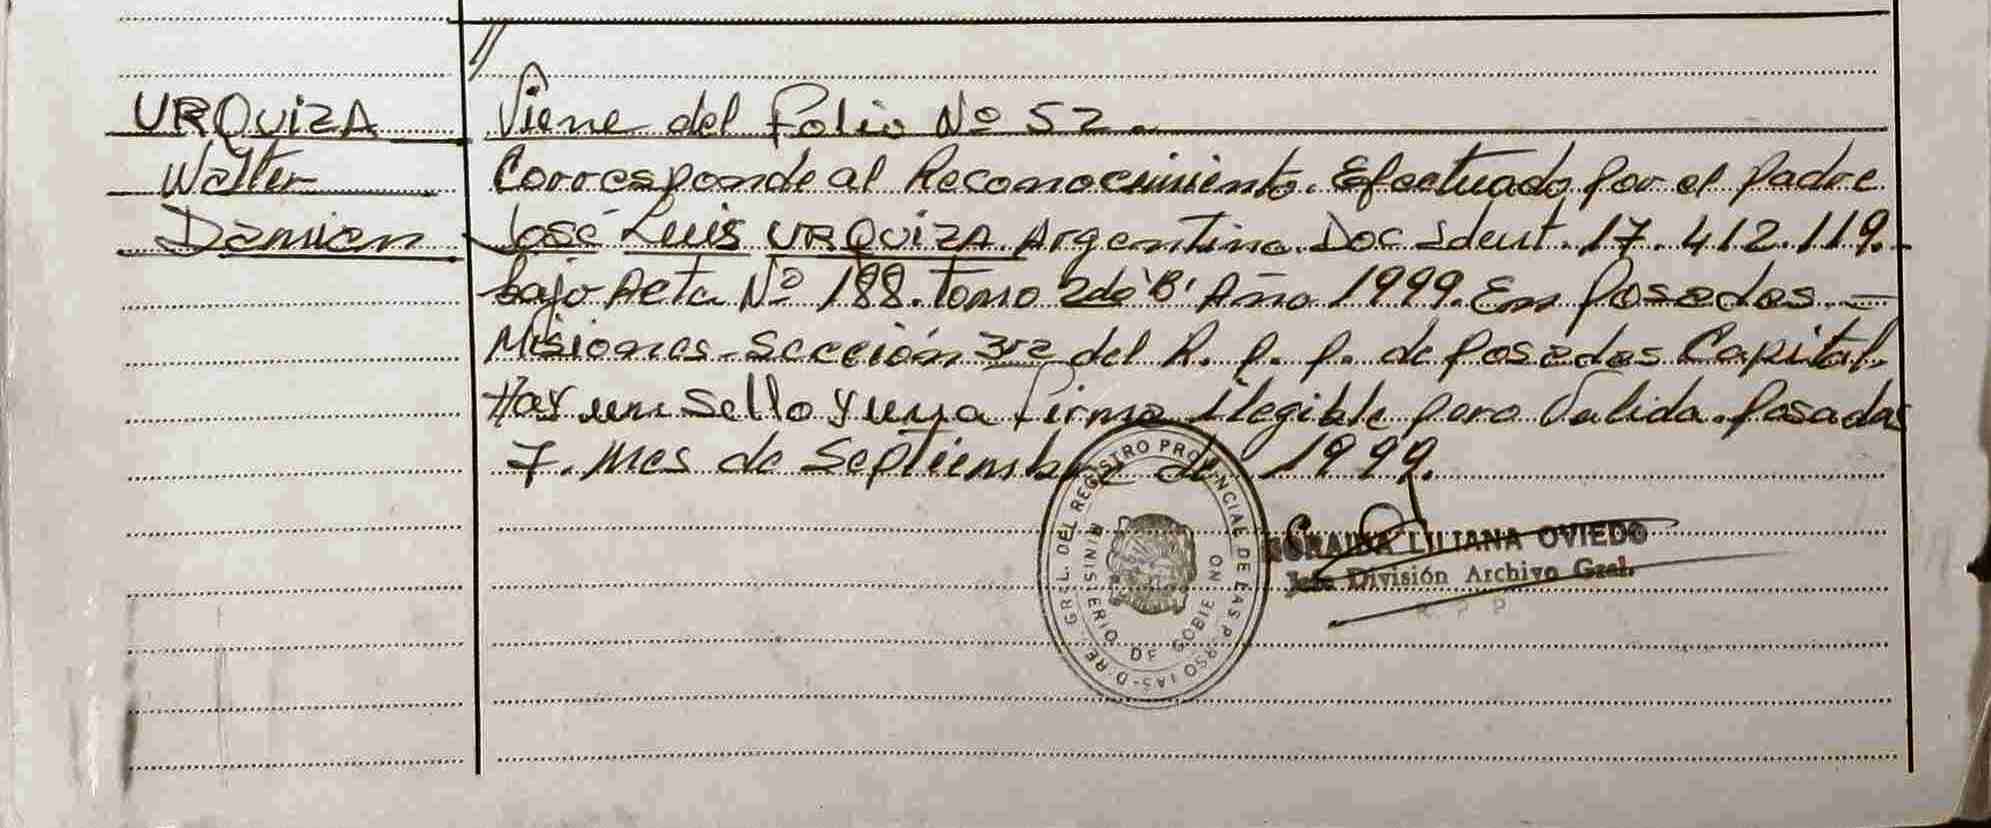 //
URQUIZA
Walter
Damian
Viene del Folio Nº 52.
Corresponde al Reconocimiento. Efectuado por el padre
José Luis URQUIZA. Argentino. Doc Ident. 17.412.119.-
bajo Acta Nº 188. Tomo 2do 'B' Año 1999. En Posadas -
Misiones - Sección 3ra del R. P. P. de Posadas Capital.
Hay un Sello y una Firma Ilegible pero Valida. Posadas
7. Mes de Septiembre de 1999.
GRL. DEL REGISTRO PROVINCIAL DE LAS PERSONAS
MINISTERIO DE GOBIERNO
LILIANA OVIEDO
Jefe División Archivo Gral.
R P P